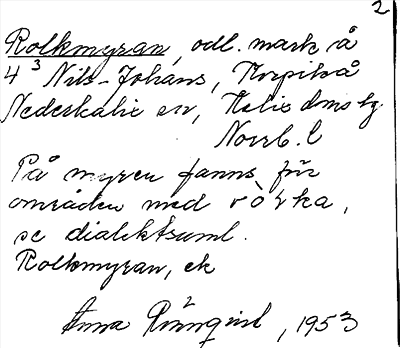 2
Rolkmyran, odl. mark å
4³ Nils-Johans, Korpikå
Nederkalix sn, Kalix dms tg.
Norrb. l
På myren fanns för
områden med ròłka,
se dialektsaml.
Rolkmyran, ek
Anna Rönnqvist, 1953